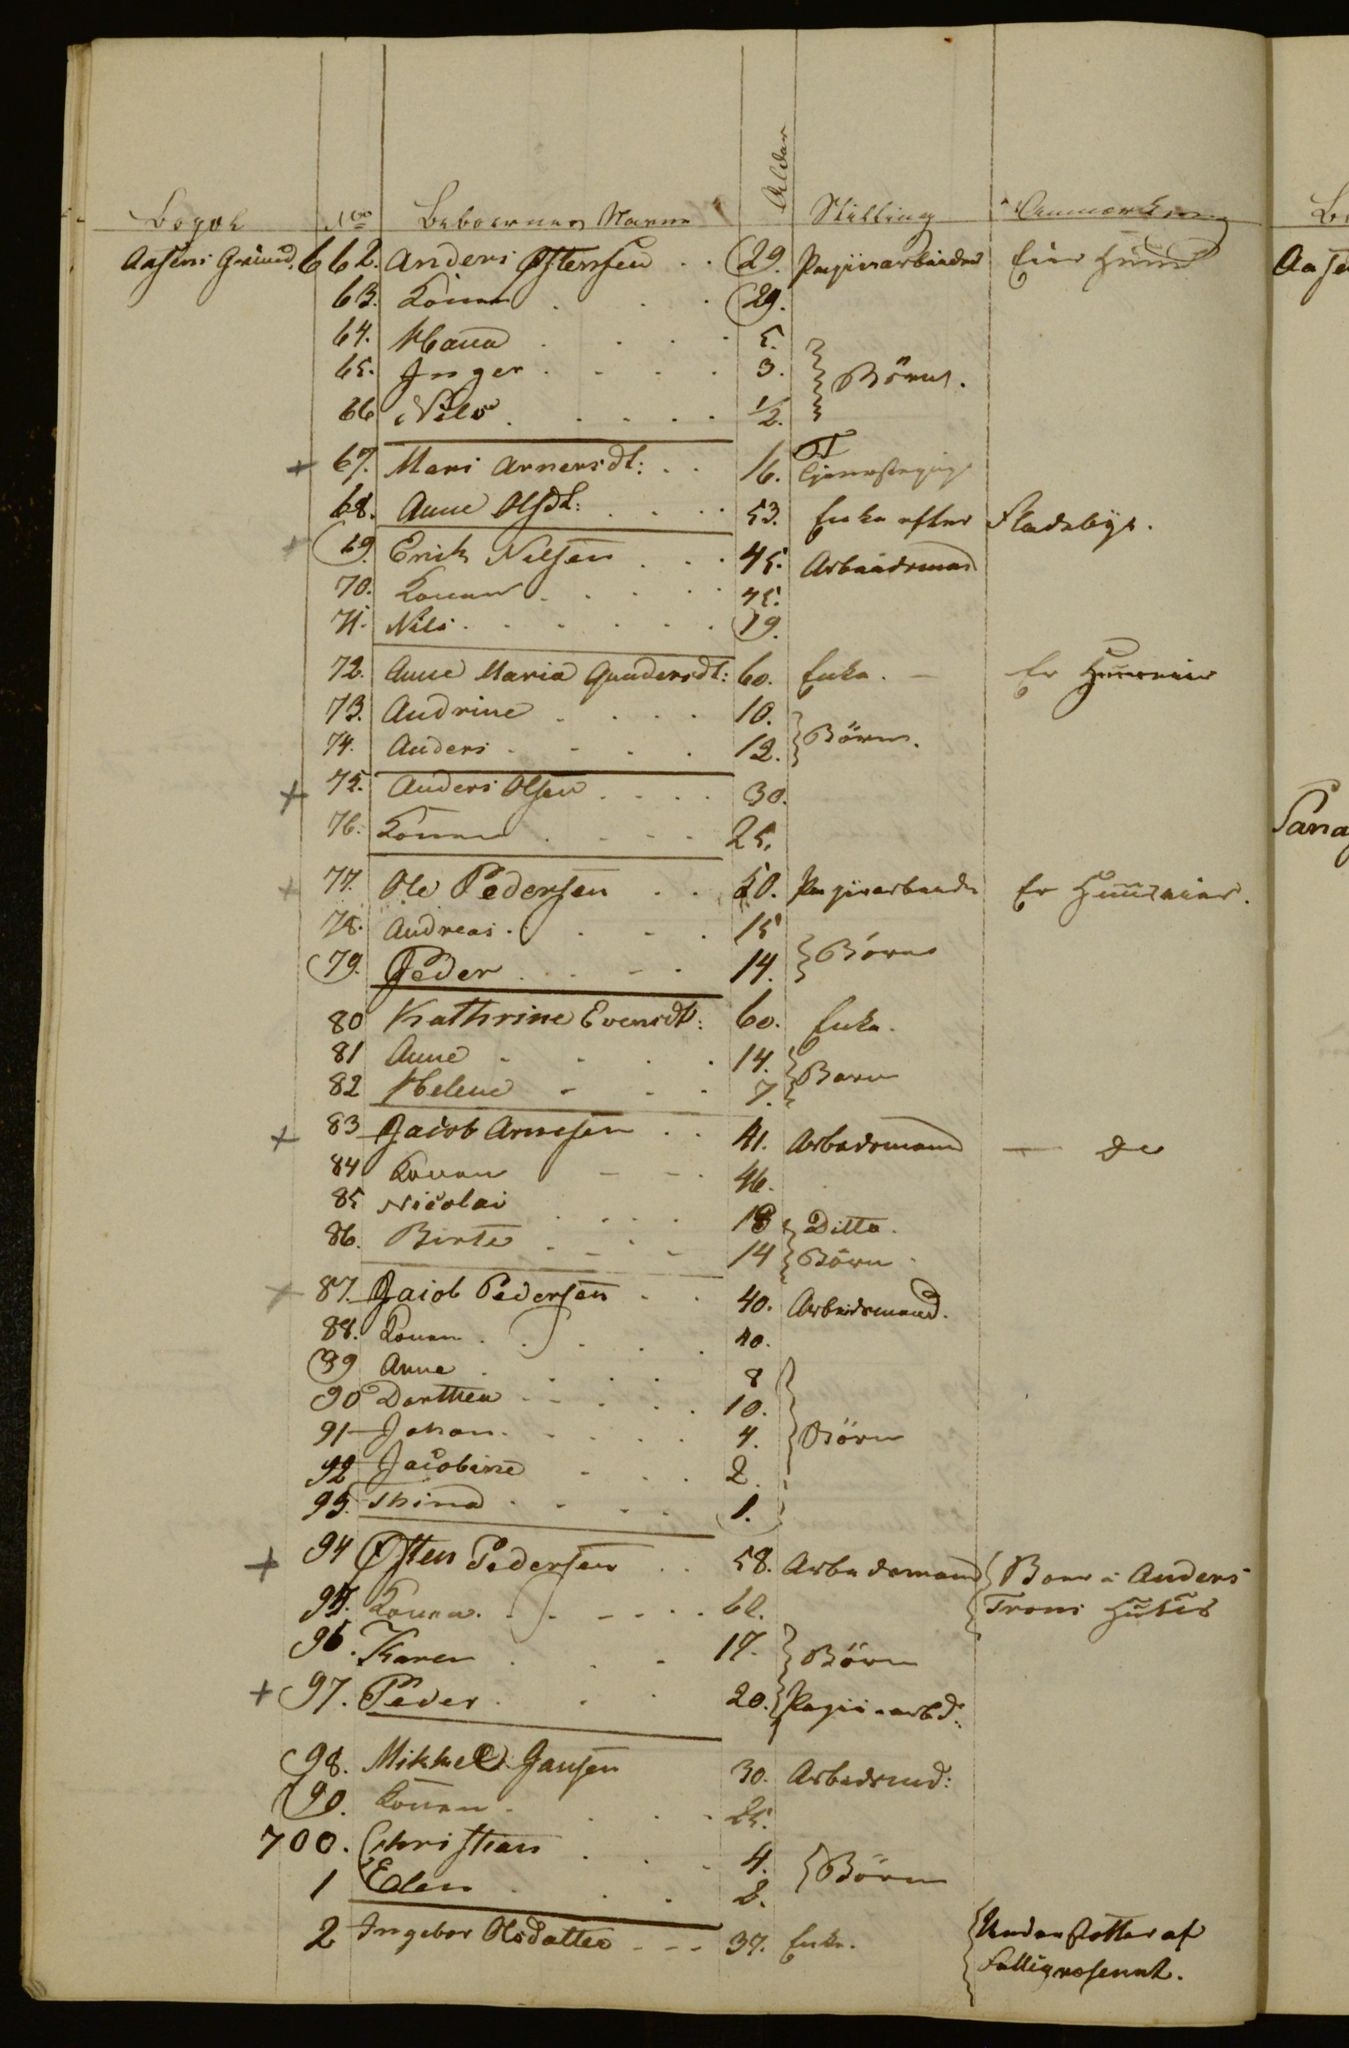 Bopæl No Beboernes Navne Alder Stilling Anmærkning
Aasens Grund. 662. Anders Østensen 29. Papiirarbeider Eier Huus
63. Konen 29.
64. Hana 5.
65. Inger 3. Börn.
66 Nils ½.
67. Mari Arnersdt: 16. Tjenestepige
68. Anne Olsdt: 53. Enke efter Fladebye.
69. Erick Nilsen 45. Arbeidsmand
70. Konen 45.
71. Nils 19.
72. Anne Maria Gundersdt: 60. Enke. Er Huuseier
73. Andrine 10.
74. Anders 12. Börn.
75. Anders Olsen 30.
76. Konen 25.
77. Ole Pedersen 50. Papiirarbeider Er Huuseier.
78. Andreas 15
79. Peder 14. Börn
80 Kathrine Evensdt: 60. Enke.
81 Anne 14.
82 Helene 7. Børn
83 Jacob Arnesen 41. Arbedsmand — Do
84 Konen 46.
85 Nicolai 18 Ditto.
86. Birte 14 Börn
87. Jacob Pedersen 40. Arbeidsmand.
88. Konen 40.
89 Anne 8
90 Dorthea 10.
91 Johan 4. Börn
92 Jacobine 2.
93. Thina 1.
94 Østen Pedersen 58. Arbedsmand Boer i Anders
95. Konen 62. Trons Huus
96. Karen 17. Börn
97. Peder 20. Papiirarbd:
98. Mikkel Jansen 30. Arbedsmd:
99. Konen 25.
700. Christian 4. Börn
1 Elen 2.
2 Ingebor Olsdatter 37. Enke. Understøttes af
Fattigvæsenet.
Aase